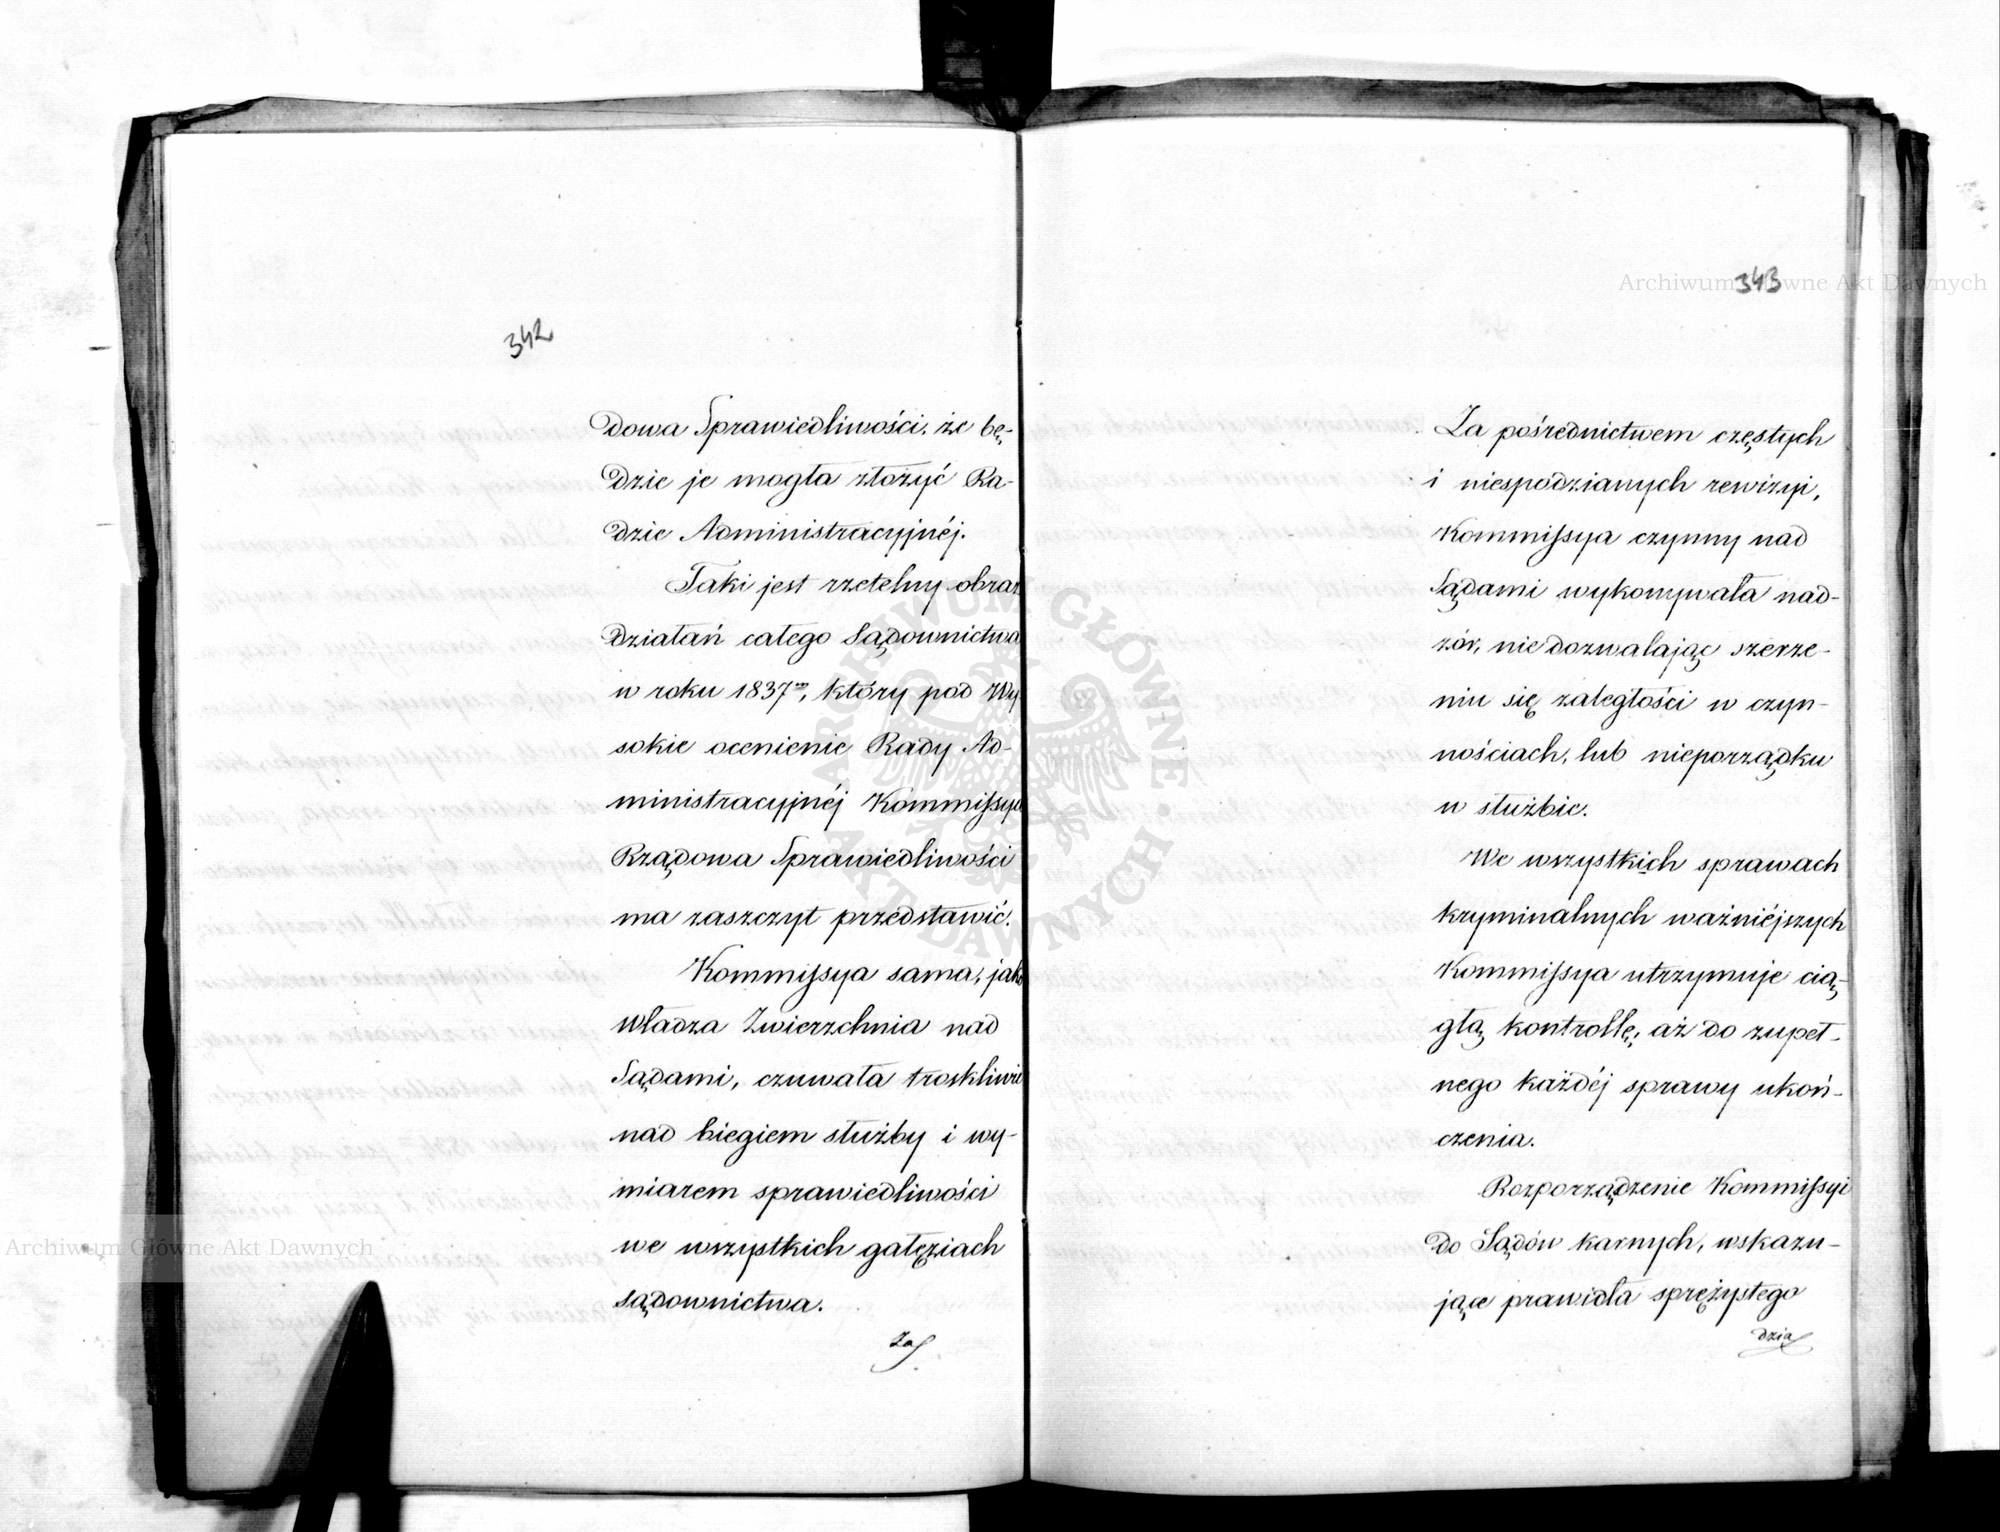 342
dowa Sprawiedliwości, że bę-
dzie je mogła złożyć Ra-
dzie Administracyjnéj.
Taki jest rzetelny obraz
działań całego Sądownictwa
w roku 1837ᵐ, który pod Wy
sokie ocenienie Rady Ad-
ministracyjnéj Kommissya
Rządowa Sprawiedliwości
ma zaszczyt przedstawić.
Kommissya sama, jako
władza Zwierzchnia nad
Sądami, czuwała troskliwie
nad biegiem służby i wy-
miarem sprawiedliwości
we wszystkich gałęziach
sądownictwa.
Za
343
Za pośrednictwem częstych
i niespodzianych rewizyi,
Kommissya czynny nad
Sądami wykonywała nad-
zór, nie dozwalając szerze-
niu się zaległości w czyn-
nościach, lub nieporządku
w służbie.
We wszystkich sprawach
kryminalnych ważniéjszych
Kommissya utrzymuje cią-
głą kontrollę, aż do zupeł-
nego każdéj sprawy ukoń-
czenia.
Rozporządzenie Kommissyi
do Sądów karnych, wskazu-
jące prawidła sprężystego
dzia
Archiwum Główne Akt Dawnych
Archiwum Główne Akt Dawnych
ARCHIWUM GŁÓWNE AKT DAWNYCH